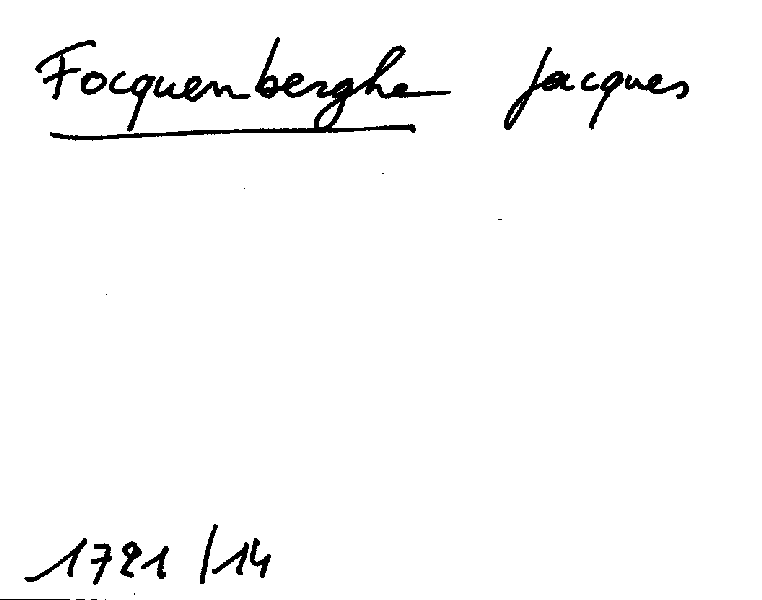 Focquenberghe Jacques
1721/14